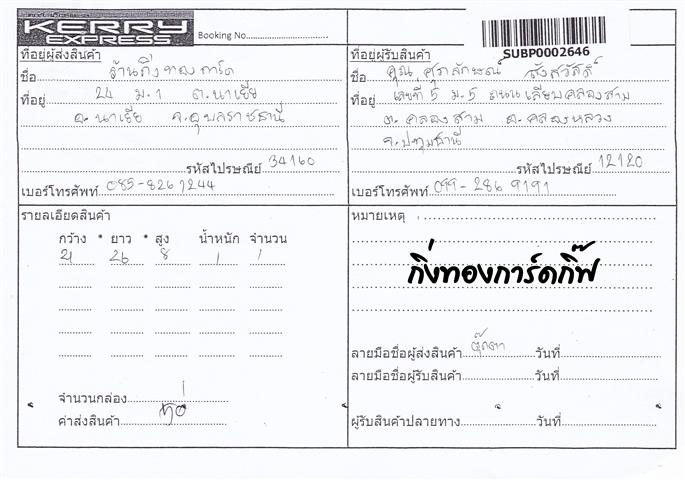 KERRY EXPRESS
Booking No.
SUBP0002646
ที่อยู่ผู้ส่งสินค้า
ชื่อ ร้านกิ่งทองการ์ด
ที่อยู่ 24 ม.1 ต.นาเยีย
อ.นาเยีย จ.อุบลราชธานี
รหัสไปรษณีย์ 34160
เบอร์โทรศัพท์ 085-826 7244
ที่อยู่ผู้รับสินค้า
ชื่อ คุณ ศุภลักษณ์
ที่อยู่ เลขที่ 5 ม.5 ถนน เลียบคลองสาม
ต. คลองสาม อ. คลองหลวง
จ.ปทุมธานี
รหัสไปรษณีย์ 12120
เบอร์โทรศัพท์ 099-286 9191
รายละเอียดสินค้า
กว้าง * ยาว * สูง น้ำหนัก จำนวน
21 26 8 1 1
จำนวนกล่อง 1
ค่าส่งสินค้า
หมายเหตุ
กิ่งทองการ์ดกิ๊ฟ
ลายมือชื่อผู้ส่งสินค้า ตุ๊กตา วันที่
ลายมือชื่อผู้รับสินค้า วันที่
ผู้รับสินค้าปลายทาง วันที่